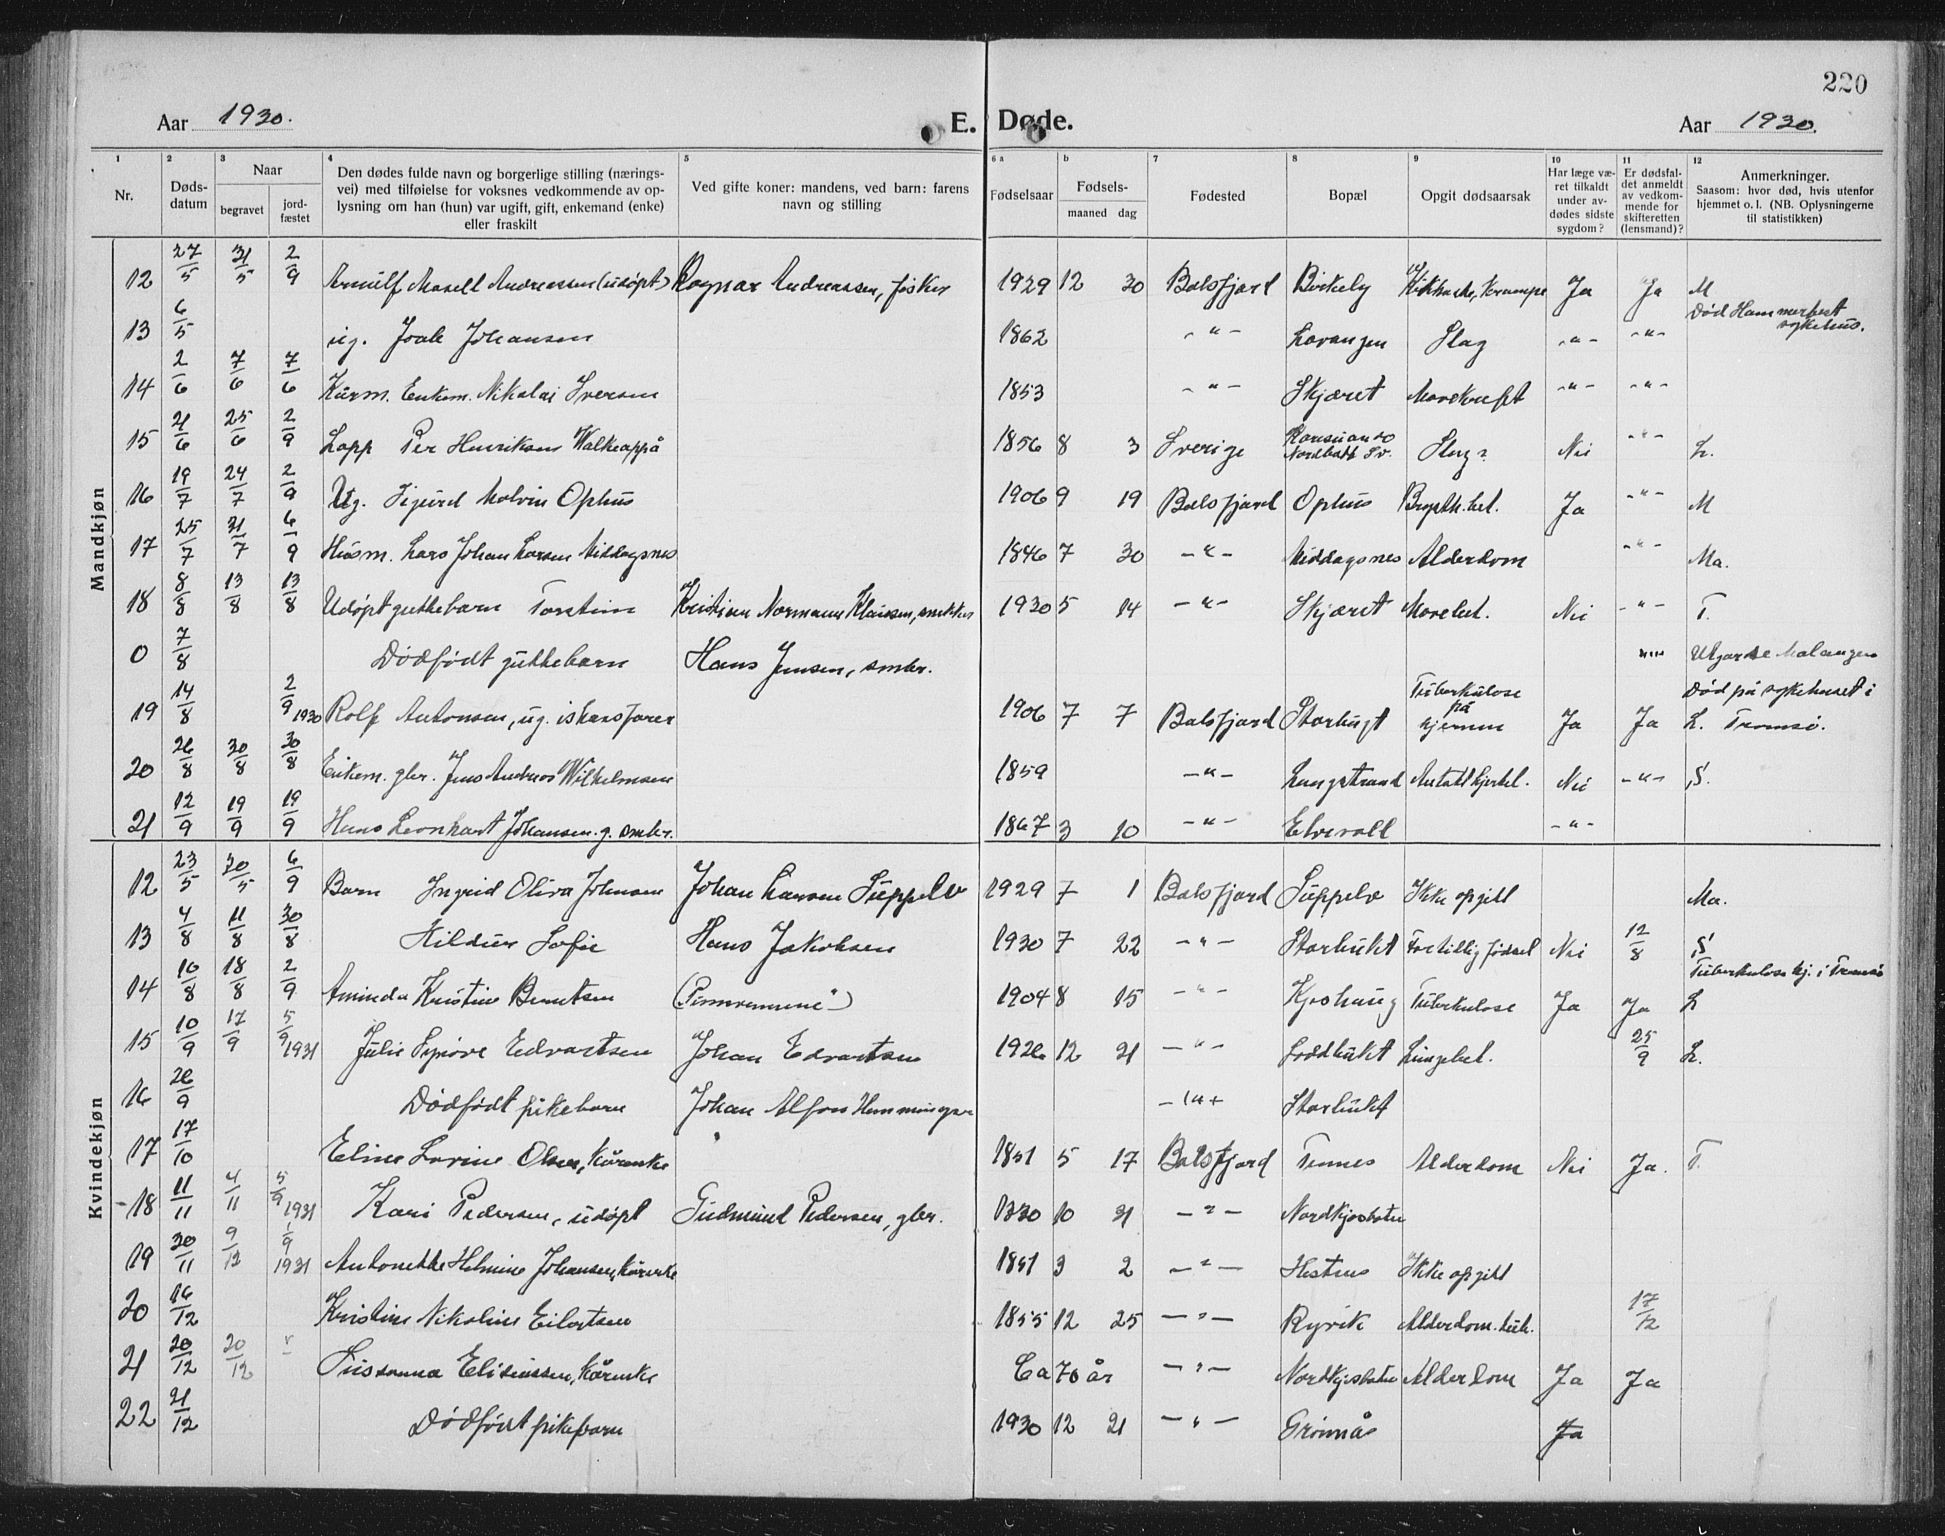 220
Aar 1930. E. Døde. Aar 1930.
1 2 3 4 5 6 a b 7 8 9 10 11 12
Nr.
Døds-
datum
Naar
begravet
jord-
fæstet
Den dødes fulde navn og borgerlige stilling (nærings-
vei) med tilføielse for voksnes vedkommende av op-
lysning om han (hun) var ugift, gift, enkemand (enke)
eller fraskilt
Ved gifte koner: mandens, ved barn: farens
navn og stilling
Fødselsaar
Fødsels-
maaned dag
Fødested
Bopæl
Opgit dødsaarsak
Har læge væ-
ret tilkaldt
under av-
dødes sidste
sygdom?
Er dødsfal-
det anmeldt
av vedkom-
mende for
skifteretten
(lensmand)?
Anmerkninger.
Saasom: hvor død, hvis utenfor
hjemmet o. l. (NB. Oplysningerne
til statistikken)
Mandkjøn
12 27/5 31/5 2/9 Arnulf Andreassen (udøpt) Ragnar Andreassen, fisker 1929 12 30 Balsfjord Birkely Kikhoste, Krampe Ja Ja M
13 6/5 ug. Johansen 1862 -"- Lavangen Slag -"- -"- Død Hammerfest sykehus.
14 2/6 7/6 7/6 Kårm. Enkem. Nikolai Iversen 1853 -"- Skjæret Mavekræft -"- -"-
15 21/6 25/6 2/9 Lapp Per Henriksen Walkeappå 1856 8 3 Sverige Karesuando Slag? Nei -"- L.
16 19/7 24/7 2/9 Ug. Sigurd Malvin Ophus 1906 9 19 Balsfjord Ophus Ja -"- M
17 25/7 31/7 6/9 Husm. Lars Johan Larsen Middagsnes 1846 7 30 -"- Middagsnes Alderdom -"- Ma.
18 8/8 13/8 13/8 Udøpt guttebarn Torstein Kristian Normann Klausen, snekker 1930 5 14 -"- Skjæret Nei -"- T.
0 7/8 Dødfødt guttebarn Hans Jensen, smbr. "" Malangen
19 14/8 2/9 1930 Rolf Antonsen, ug. ishavsfarer 1906 7 7 Balsfjord Storbugt Tuberkulose på hjernen Ja Ja Død på sykehuset i L. Tromsø.
20 26/8 30/8 30/8 Enkem. gbr. Jens Andreas Wilhelmsen 1859 -"- Langstrand Nei -"- S.
21 12/9 19/9 19/9 Hans Leonhart Johansen. g. smbr. 1867 3 10 -"- Elvevoll -"-
Kvindekjøn
12 23/5 30/5 6/9 Barn Ingrid Oliva Johansen Johan Larsen Suppelv 1929 7 1 Balsfjord Suppelv Ikke opgitt Ma.
13 4/8 11/8 30/8 Hildur Sofie Hans Jakobsen 1930 7 22 -"- Storbukt For tidlig fødsel Nei 12/8 S.
14 10/8 18/8 2/9 Aminda Kristine Berntsen 1904 8 15 -"- Kjoshaug Tuberkulose Ja Ja Tuberkulosehj. i Tromsø L
15 10/9 17/9 5/9 1931 Julie Synøve Edvartsen Johan Edvartsen 1926 12 21 -"- Lungebet. 25/9 L.
16 26/9 Dødfødt pikebarn Johan Alfon Hemmingsen -"- Storbukt
17 17/10 Eline Lovine Olsen, kårenke 1851 5 17 Balsfjord Tennes Alderdom Nei Ja. T.
18 11/11 4/11 5/9 1931 Kari Pedersen, udøpt Gudmund Pedersen, gbr. 1930 10 21 -"- Nordkjosbotn
19 30/11 9/12 1/9 1931 Antonette Helmine Johansen, kårenke 1851 3 2 -"- Hestnes Ikke opgitt
20 16/12 Kristine Nikoline Eilertsen 1855 12 25 -"- Ryvik Alderdom. 17/12
21 20/12 20/12 Susanna Eliseussen, kårenke Ca 70 år -"- Nordkjosbotn Alderdom Ja Ja
22 21/12 Dødfødt pikebarn 1930 12 21 -"- Grønnås Ja